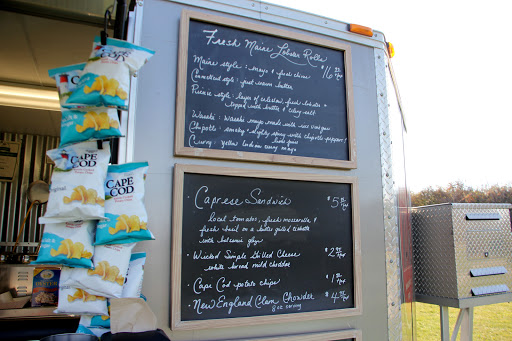 Fresh Maine Lobster Rolls
Maine style: mayo + fresh chives
$16
Connecticut style: just warm butter
Picnic style: layer of coleslaw, fresh lobster +
topped with butter + celery salt
Wasabi: Wasabi mayo made with rice vinegar
Chipotle: smokey + slightly spicy with chipotle peppers +
lime juice
Curry: yellow Indian curry mayo
Caprese Sandwich $5
local tomatoes, fresh mozzarella, +
fresh basil on a butter grilled ciabatta
with balsamic glaze
Wicked Simple Grilled Cheese $2
white bread mild cheddar
Cape Cod potato chips $1
New England Clam Chowder $4
8 oz serving
CAPE
COD
CAPE
COD